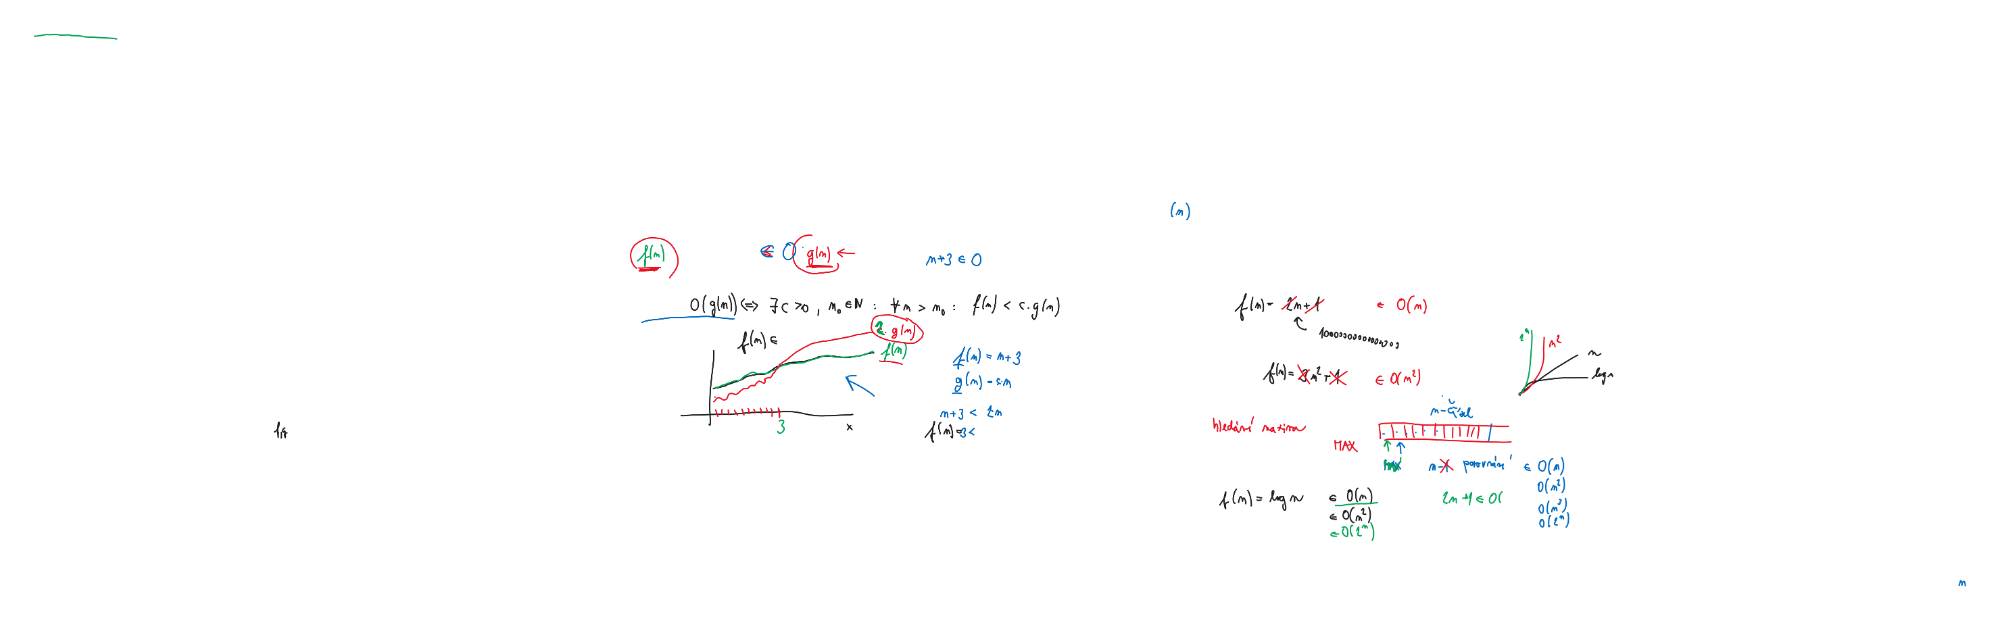 (n)
f(n) ∈ O g(n) ←
n+3 ∈ O
O(g(n)) ⟺ ∃ c >0 , n₀ ∈ N : ∀ n > n₀ : f(n) < c.g(n)
f(n) ∈
2. g(n)
f(n)
3
x
f(n) = n+3
n+3 < 2n
f(n) = 3 <
f(n) = 2n+1 ∈ O(n)
f(n) = n² + 1 ∈ O(n²)
2ⁿ
n²
n
log n
n-čísel
hledání maxima
MAX
MAX
n-1 porovnání ∈ O(n)
O(n²)
O(n³)
O(2ⁿ)
f(n) = log n ∈ O(n)
∈ O(n²)
∈ O(2ⁿ)
2n+1 ∈ O(
n